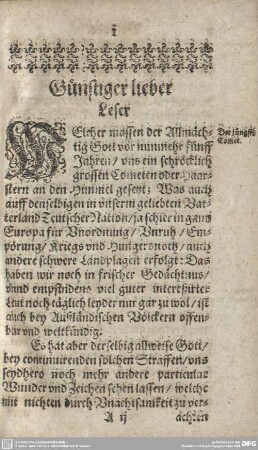 1
Günstiger lieber
Leser
WElcher massen der Allmäch-
tig Gott vor nunmehr fünff
Jahren / vns ein schröcklich
grossen Cometen oder Haar-
stern an den Himmel gesetzt: Was auch
auff denselbigen in vnserm geliebten Vat-
terland Teutscher Nation / ja schier in gantz
Europa für Vnordnung / Vnruh / Em-
pörung / Kriegs vnd Hungersnoth / auch
andere schwere Landplagen erfolgt: Das
haben wir noch in frischer Gedächtnus /
vnnd empfindens viel guter interessirter
Leut noch täglich leyder nur gar zu wol / ist
auch bey Außländischen Völckern offen-
bar vnd weltkündig.
Es hat aber derselbig allweise Gott /
bey continuirenden solchen Straffen / vns
seydhero noch mehr andere particular
Wunder vnd Zeichen sehen lassen / welche
mit nichten durch Vnachtsamkeit zu ver-
A ij achten
Der jüngste
Comet.